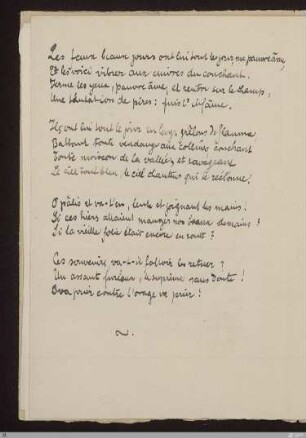 Les faux beaux jours ont lui tout le jour, ma pauvre âme,
Et les voici vibrer aux cuivres du couchant.
Ferme les yeux, pauvre âme, et rentre sur le champ,
Une tentation des pires : fuis l'infâme.
Ils ont lui tout le jour en longs grêlons de flamme
Battant toute vendange aux collines, couchant
Toute moisson de la vallée, et ravageant
Le ciel tout bleu, le ciel chanteur qui te réclame.
O pâlis et va-t'en, lente et joignant les mains.
Si ces hiers allaient manger nos beaux demains ?
Si la vieille folie était encore en route ?
Ces souvenirs va-t-il falloir les retuer ?
Un assaut furieux, le suprême sans doute !
O va prier contre l'orage va prier !